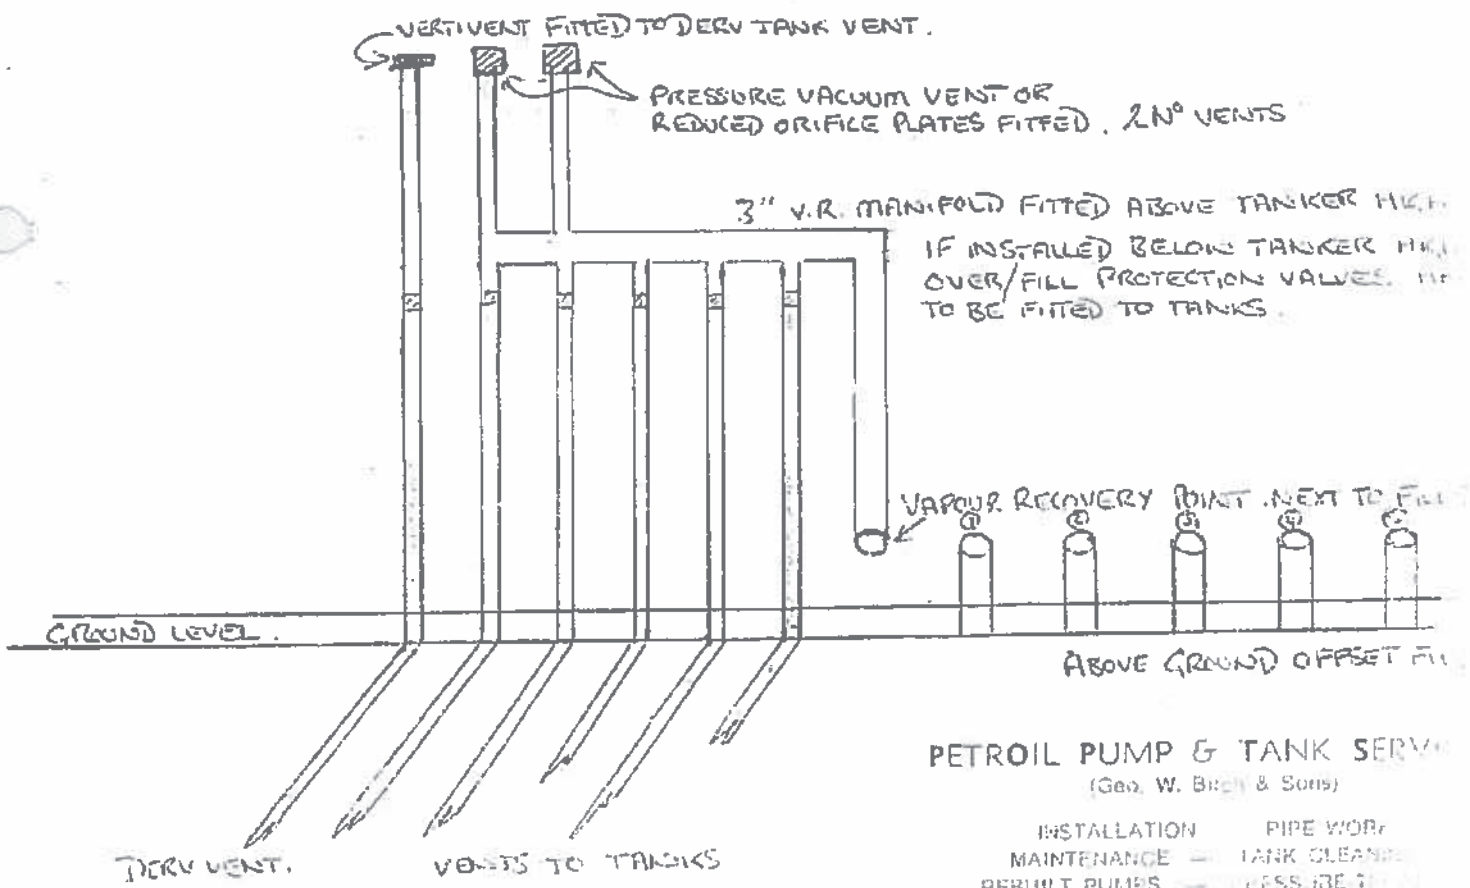 VERTIVENT FITTED TO DERV TANK VENT.
PRESSURE VACUUM VENT OR
REDUCED ORIFICE PLATES FITTED. 2Nº VENTS
3" V.R. MANIFOLD FITTED ABOVE TANKER
IF INSTALLED BELOW TANKER
OVER/FILL PROTECTION VALVES.
TO BE FITTED TO TANKS.
VAPOUR RECOVERY POINT. NEXT TO
1 2 3 4
GROUND LEVEL.
ABOVE GROUND OFFSET
PETROIL PUMP & TANK SERV
(Geo. W. Birch & Sons)
INSTALLATION PIPE WORK
MAINTENANCE — TANK CLEAN
REBUILT PUMPS —
DERV VENT. VENTS TO TANKS